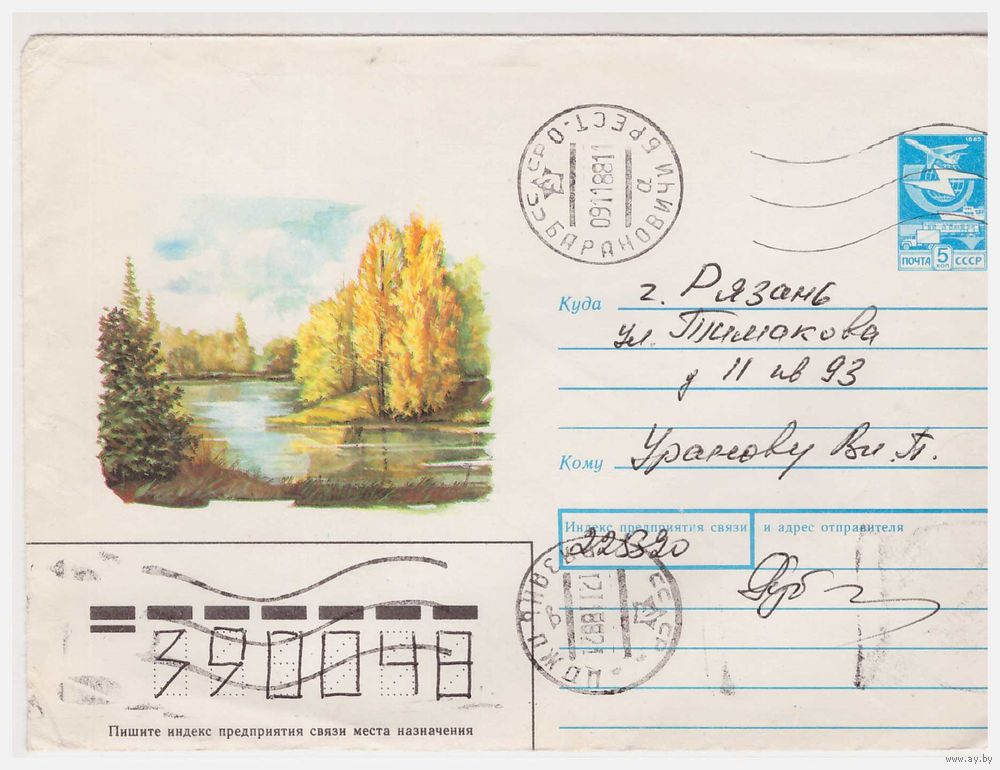 БАРАНОВИЧИ БРЕСТ. О
СССР
091118811
1982
ПОЧТА 5 КОП СССР
Куда г. Рязань
ул. Тимакова
д 11 кв 93
Кому Уранову Вл. П.
Индекс предприятия связи и адрес отправителя
225320
РЯЗАНЬ
СССР
390048
Пишите индекс предприятия связи места назначения
www.ay.by